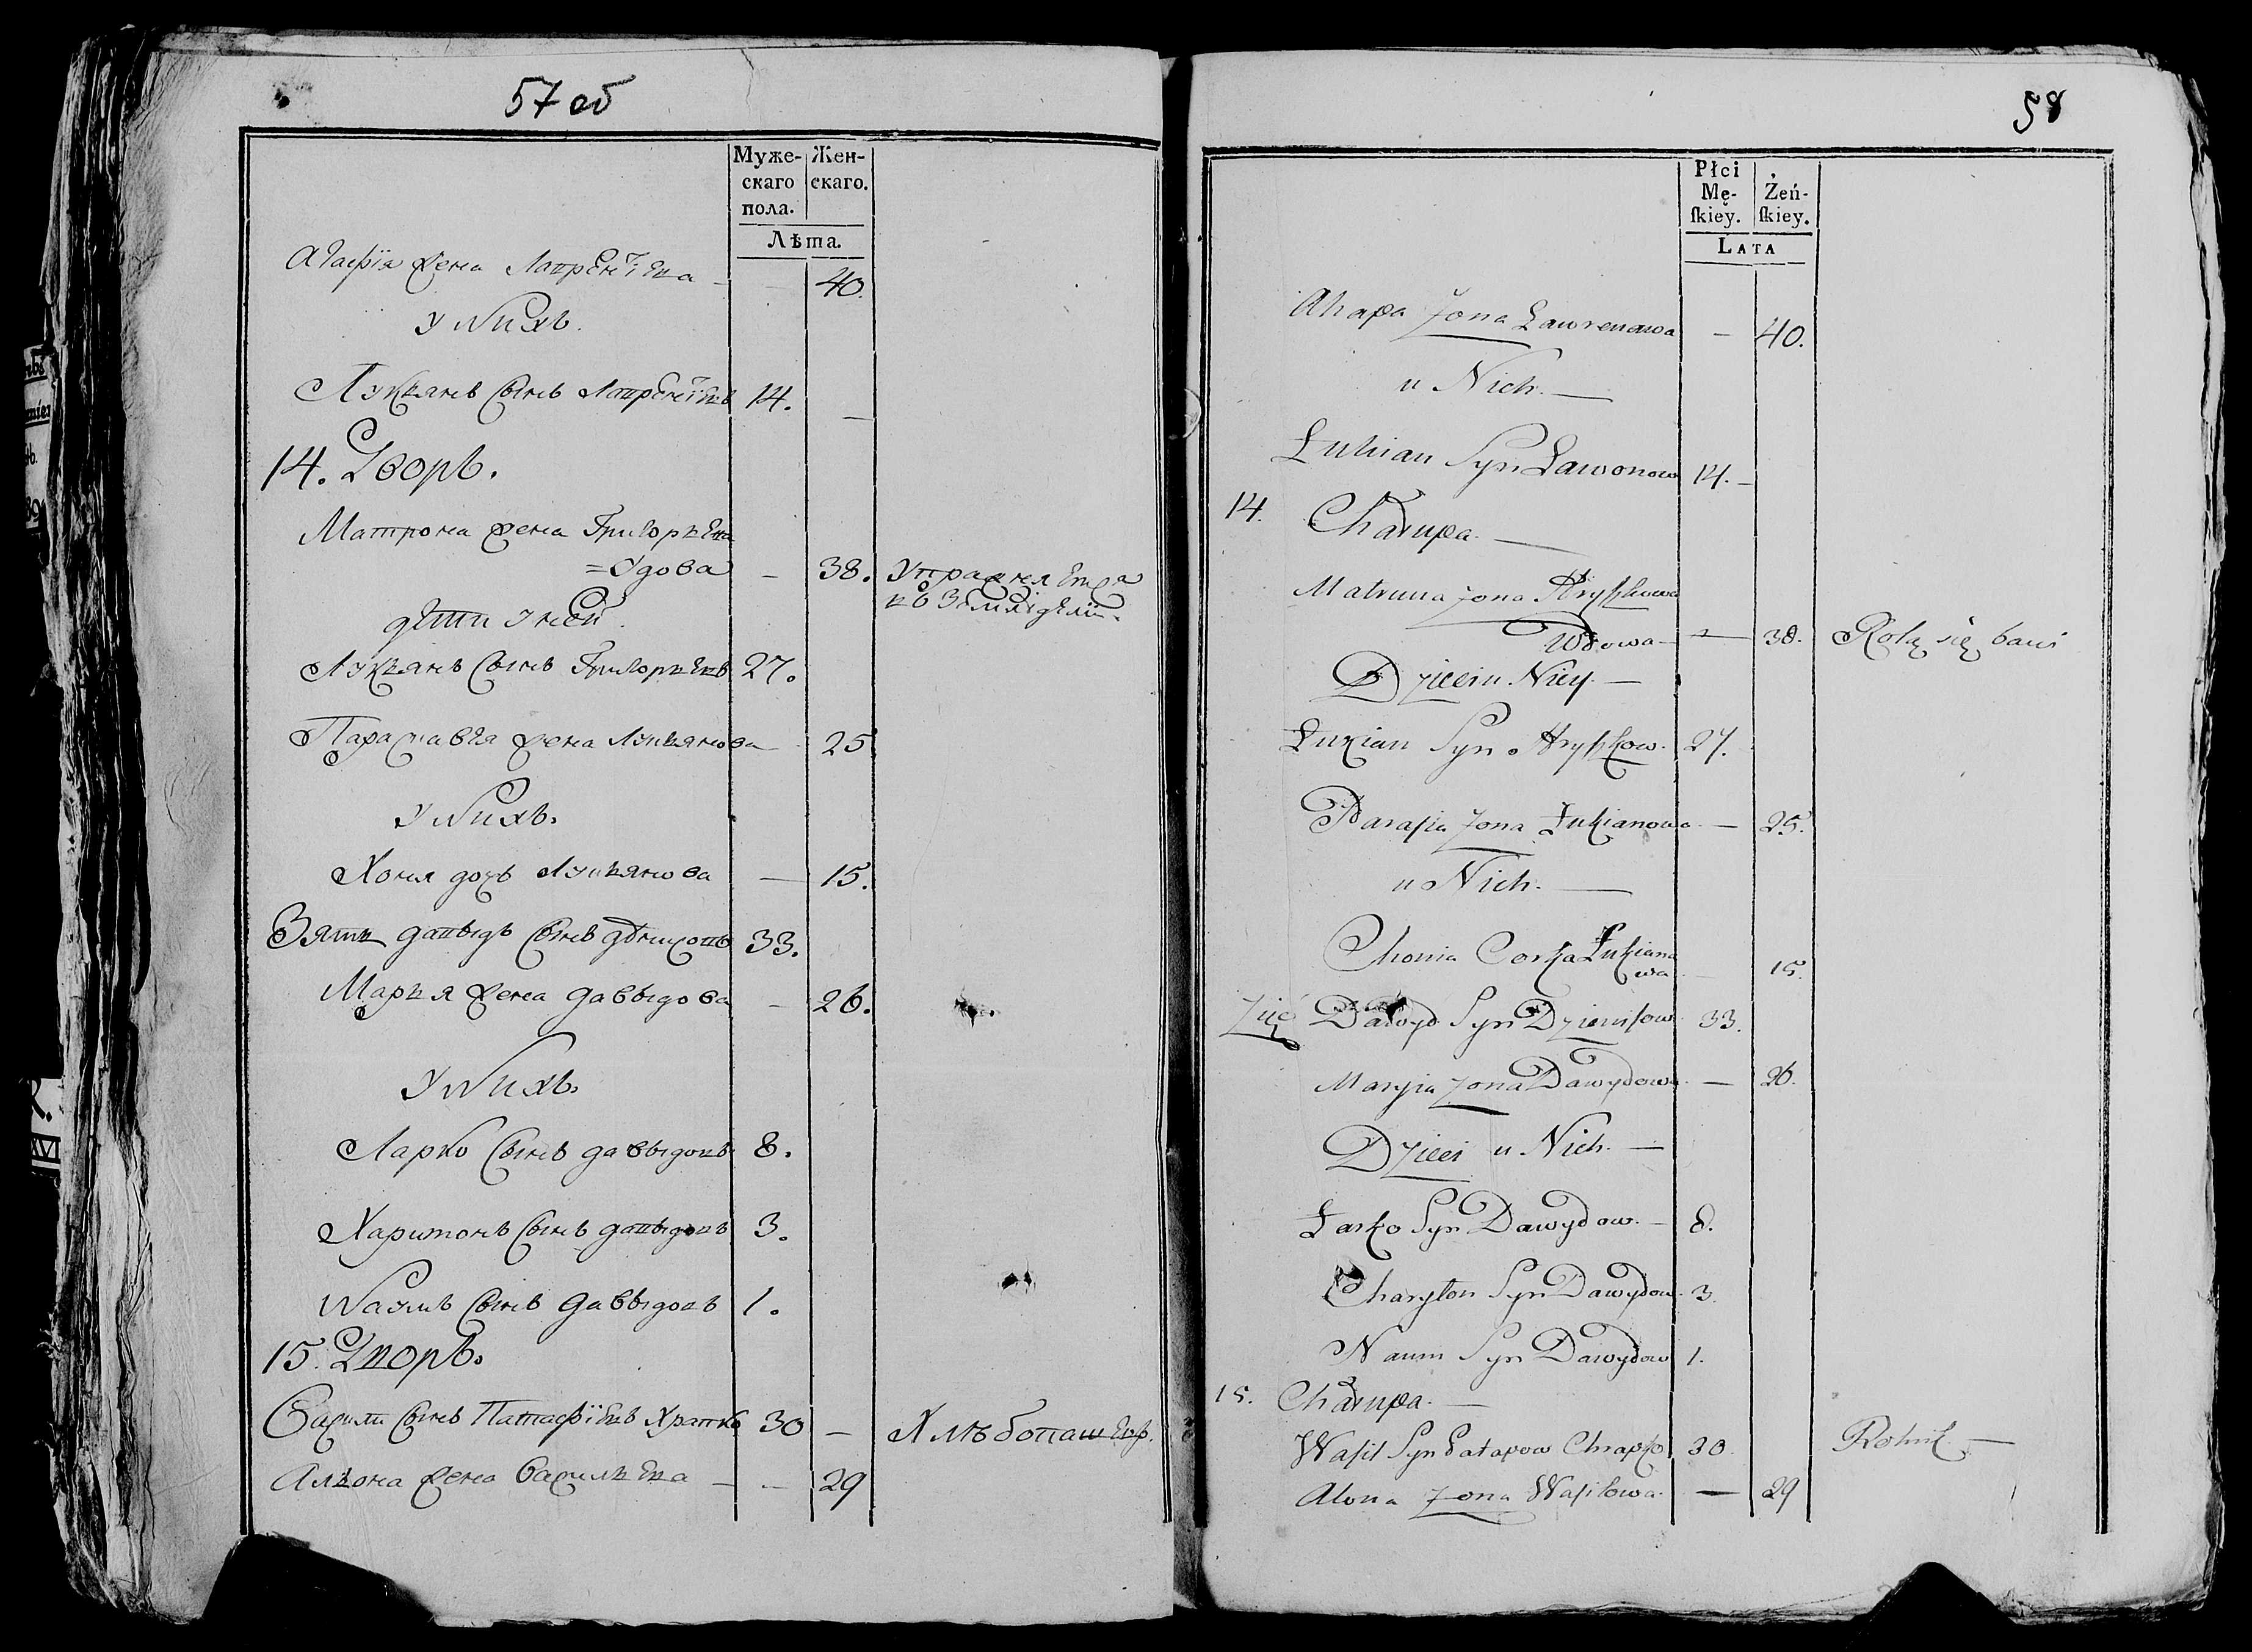 57 об
Муже-
скаго
пола.
Жен-
скаго.
Лѣта.
Агафія жена Лаврентіева — 40.
У Нихъ.
Лукьянъ Сынъ Лаврентіевъ 14. —
14. Дворъ.
Матрона жена Григорьева
=Удова — 38. Упражняется
въ Земледеліи.
дети У ней.
Лукьянъ Сынъ Григорьевъ 27.
Парасковія жена Лукьянова — 25
У Нихъ.
Хоня дочь Лукьянова — 15.
Зять давыдъ Сынъ дѣнисовъ 33.
Марья жена давыдова — 26.
У Нихъ.
Ларко Сынъ давыдовъ 8.
Харитонъ Сынъ давыдовъ 3.
Наумъ Сынъ давыдовъ 1.
15. Дворъ.
Василь Сынъ Патафіевъ Храпко 30 — Хлѣбопашецъ.
Алѣона жена Васильева — — 29
58
Płci
Mę-
ſkiey.
Żeń-
ſkiey.
LATA
Ahapa Zona Lawrenowa — 40.
u Nich. —
Łukian Syn Lawonow 14. —
14. Chałupa. —
Matruna Zona Hryszkowa
Wdowa — — 38. Rolą się bawi
Dzieci u Niey. —
Łukian Syn Hryszkow. 27.
Parasia Zona Łukianowa. — 25.
u Nich. —
Chonia Corka Łukiano
wa — 15.
Zięć Dawyd Syn Dzienisow 33.
Maryia Zona Dawydowa. — 26.
Dzieci u Nich. —
Łarko Syn Dawydow. — 8.
Charyton Syn Dawydow. 3.
Naum Syn Dawydow 1.
15. Chałupa. —
Wasil Syn Patapow Chrapko 30. Rolnik. —
Alona Zona Wasilowa. — 29